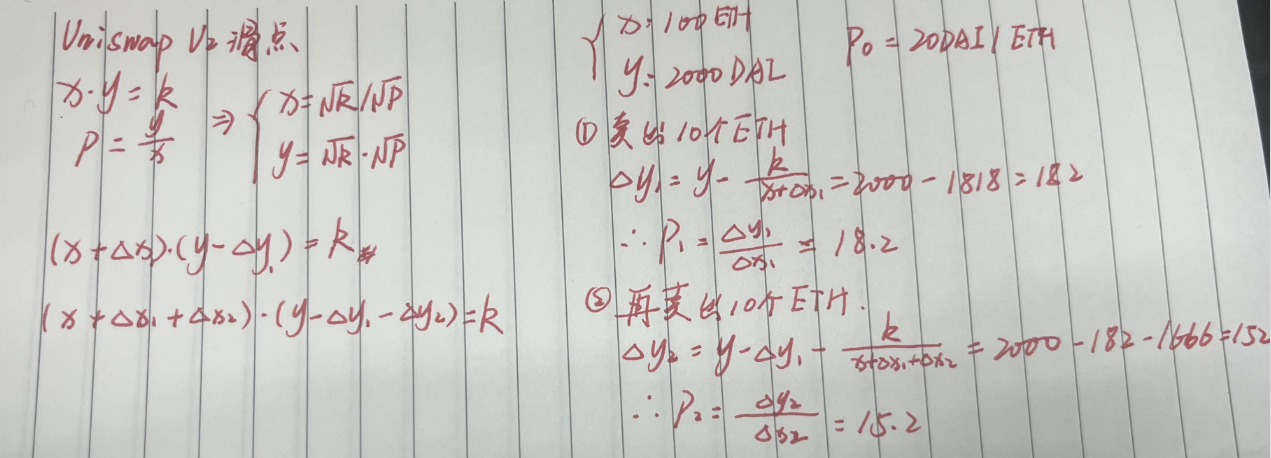 Uniswap V2 滑点、
x·y = k
P = y/x ⇒ { x = √k/√P
y = √k·√P
(x + Δx)·(y - Δy₁) = k
(x + Δx₁ + Δx₂)·(y - Δy₁ - Δy₂) = k
{ x: 100 ETH
y: 2000 DAI
P₀ = 20DAI / ETH
① 卖出 10个ETH
Δy₁ = y - k/(x+Δx₁) = 2000 - 1818 = 182
∴ P₁ = Δy₁/Δx₁ = 18.2
② 再卖出10个ETH.
Δy₂ = y - Δy₁ - k/(x+Δx₁+Δx₂) = 2000 - 182 - 1666 = 152
∴ P₂ = Δy₂/Δx₂ = 15.2